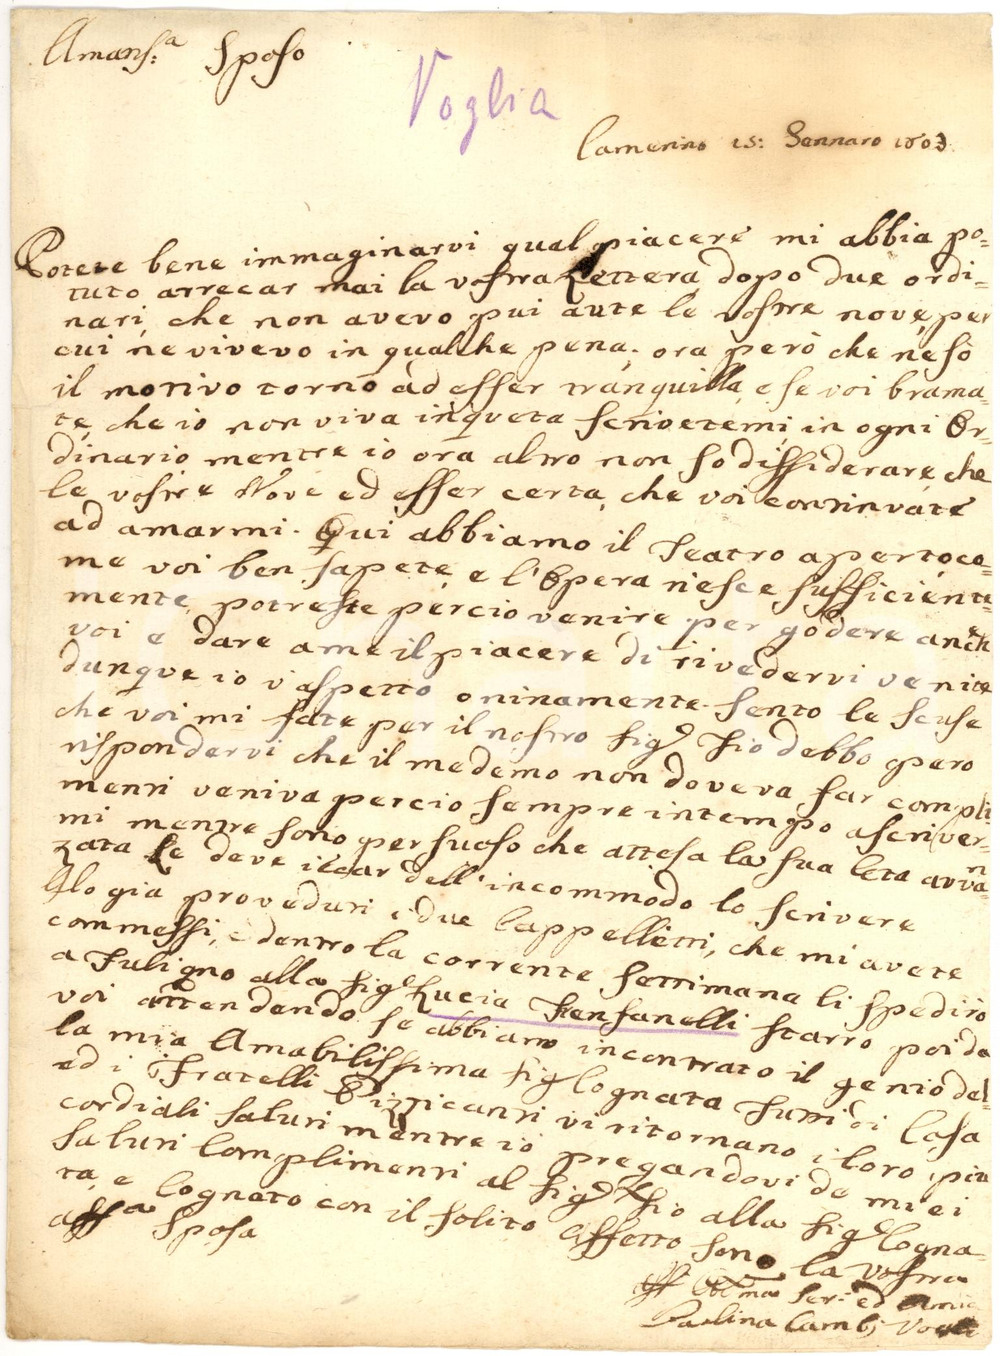 Amans:ª Sposo
Voglia
Camerino 15: Gennaro 1803
Potete bene immaginarvi qual piacere mi abbia po-
tuto arrecar mai la vostra Lettera dopo due ordi-
nari, che non avevo pui aute le vostre nove, per
cui ne vivevo in qualche pena. ora però che ne sò
il motivo torno ad esser tranquilla, e se voi brama-
te, che io non viva inqueta scrivetemi in ogni Or-
dinario mentre io ora altro non so dissiderare, che
le vostre Nove ed esser certa, che voi continvate
ad amarmi. Qui abbiamo il Teatro aperto co-
me voi ben sapete, e l'Opera riesce sufficiente-
mente, potreste perciò venire per godere anche
voi e dare a me il piacere di rivedervi venite
dunque io v'aspetto oninamente. Sento le scuse
che voi mi fate per il nostro Sigᵉ Zio debbo però
rispondervi che il medemo non doveva far compli
menti veniva perciò sempre in tempo a scriver-
mi mentre sono persuaso che attesa la sua Età avvan
zata Le deve recar dell'incommodo lo scrivere
Hò già proveduti i due Cappelletti, che mi avete
commessi, e dentro la corrente Settimana li spedirò
a Fuligno alla Sigᵉ Lucia Fenfanelli starrò poi da
voi attendendo se abbiano incontrato il genio del-
la mia Amabilissima Sigᵉ Cognata Tutti di Casa
ed i Fratelli Pizzicanti vi ritornano i loro più
cordiali saluti mentre io pregandovi de miei
saluti Complimenti al Sigᵉ Zio alla Sigᵉ Cogna-
ta, e Cognato con il solito affetto sono la vostra
affª Sposa
Obᵐᵃ Ser: ed Amic
Paolina Cambi Voglia